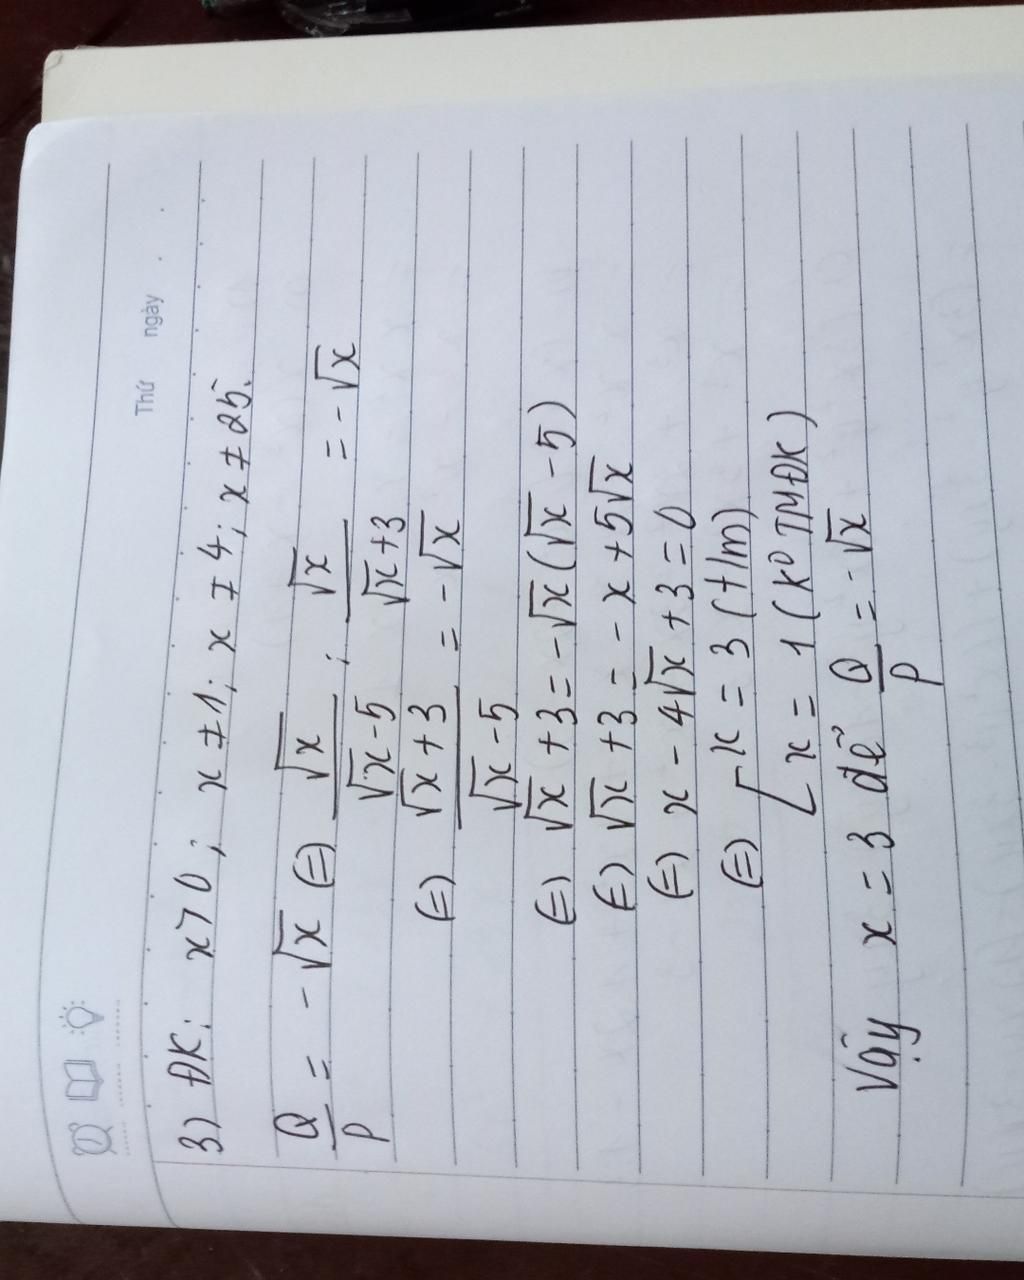 Thứ ngày
3) ĐK: x > 0; x ≠ 1; x ≠ 4; x ≠ 25.
Q/P = -√x (=) √x/(√x-5) : √x/(√x+3) = -√x
(=) (√x+3)/(√x-5) = -√x
(=) √x+3 = -√x(√x-5)
(=) √x+3 = -x+5√x
(=) x-4√x+3=0
(=) [x = 3 (t/m)
[x = 1 (k° TMĐK)
Vậy x = 3 để Q/P = -√x